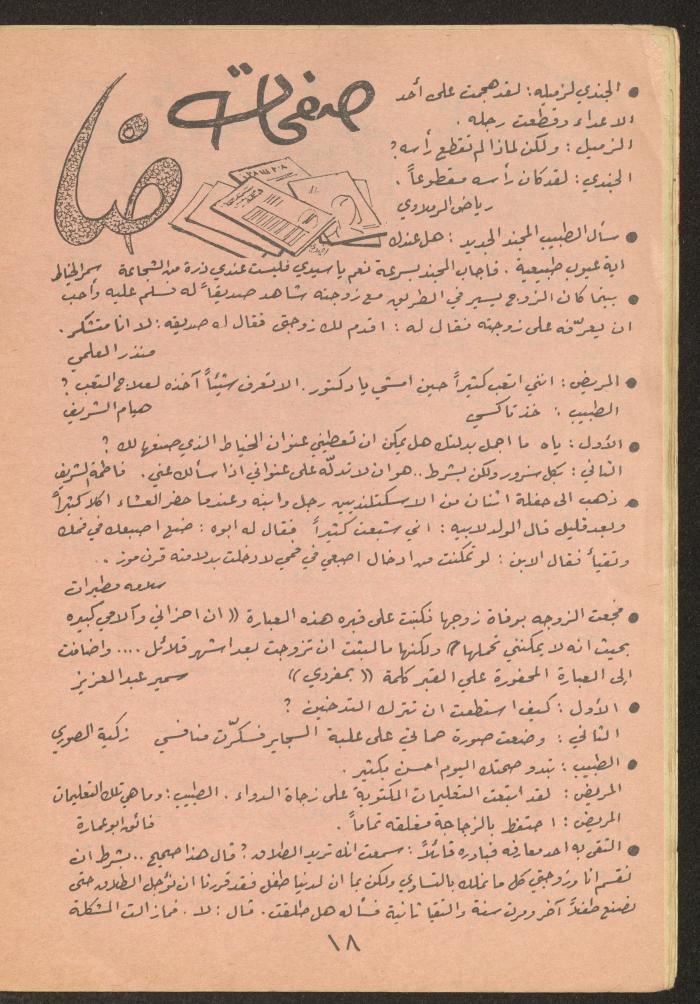 صفحات
ضا
● الجندي لزميله : لقد هجمت على أحد
الاعداء وقطعت رجله .
الزميل : ولكن لماذا لم تقطع رأسه ؟
الجندي : لقد كان رأسه مقطوعاً .
رياض الرملاوي
● سأل الطبيب المجند الجديد : هل عندك
اية عيوب طبيعية . فاجاب المجند بسرعة نعم يا سيدي فليست عندي ذرة من الشجاعة سمر الخياط
● بينما كان الزوج يسير في الطريق مع زوجته شاهد صديقاً له فسلم عليه وأحب
ان يعرّفه على زوجته فقال له : اقدم لك زوجتي فقال له صديقه : لا انا متشكر .
منذر العلمي
● المريض : انني اتعب كثيراً حين امشي يا دكتور . الا تعرف شيئاً آخذه لعلاج التعب ؟
الطبيب : خذ تاكسي هيام الشريف
● الأول : ياه ما اجمل بدلتك هل يمكن ان تعطيني عنوان الخياط الذي صنعها لك ؟
الثاني : بكل سرور ولكن بشرط .. هو ان لا تدلّه على عنواني اذا سألك عني . فاطمة الشريف
● ذهب الى حفلة اثنان من الاسكتلنديين رجل وابنه وعندما حضر العشاء اكلا كثيراً
وبعد قليل قال الولد لابيه : اني شبعت كثيراً فقال له ابوه : ضع اصبعك في فمك
وتقيأ فقال الابن : لو تمكنت من ادخال اصبعي في فمي لادخلت بدلا منه قرن موز ..
سلامه مطيرات
● فجعت الزوجه بوفاة زوجها فكتبت على قبره هذه العبارة (( ان احزاني وآلامي كبيره
بحيث انه لا يمكنني تحملها )) ولكنها ما لبثت ان تزوجت بعد اشهر قلائل .... واضافت
إلى العبارة المحفورة علي القبر كلمة (( بمفردي )) سمير عبد العزيز
● الأول : كيف استطعت ان تترك التدخين ؟
الثاني : وضعت صورة حماتي على علبة السجاير فسكرّت منافسي زكية الصوري
● الطبيب : تبدو صحتك اليوم احسن بكثير .
المريض : لقد اتبعت التعليمات المكتوبة على زجاة الدواء . الطبيب : وما هي تلك التعليمات
المريض : احتفظ بالزجاجة مغلقه تماماً . فائق ابو عمارة
● التقى به احد معارفه فبادره قائلاً : سمعت انك تريد الطلاق ؟ قال هذا صحيح .. بشرط ان
نقسم انا وزوجتي كل ما نملك بالتساوي ولكن بما ان لدينا طفل فقد قررنا ان نؤجل الطلاق حتى
نصنع طفلاً آخر ومرت سنة والتقيا ثانية فسأله هل طلقت . قال : لا . فما زالت المشكلة
١٨